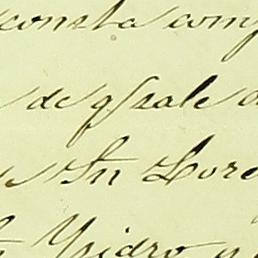 consta comp
de q sale a
Sn Lore
Ysidro y